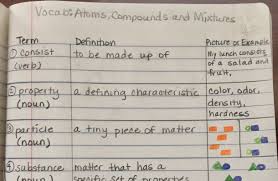 Vocab: Atoms, Compounds and Mixtures
Term Definition Picture or Example
① consist to be made up of My lunch consists
(verb) of a salad and
fruit.
② property a defining characteristic color, odor,
(noun) density,
hardness
③ particle a tiny piece of matter
(noun)
④ substance matter that has a
(noun) specific set of properties